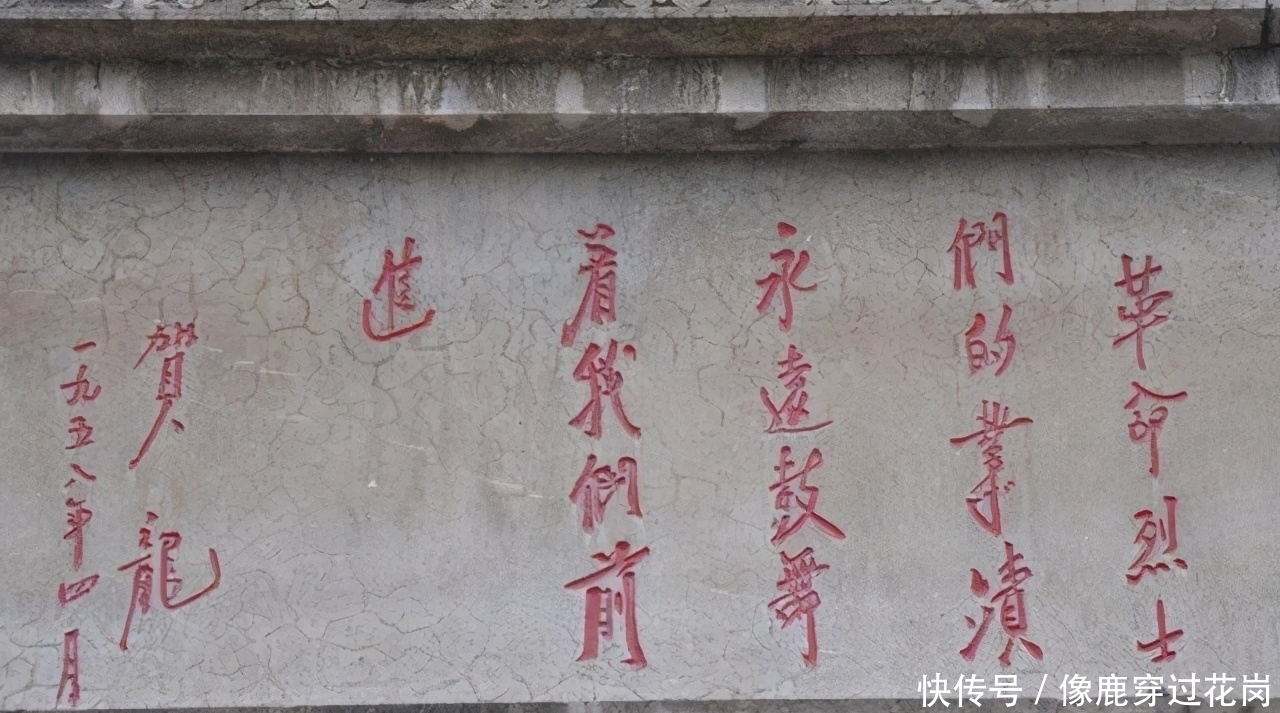 革命烈士
們的業績
永遠鼓舞
着我們前
進
賀龍
一九五八年四月
快传号 / 像鹿穿过花岗